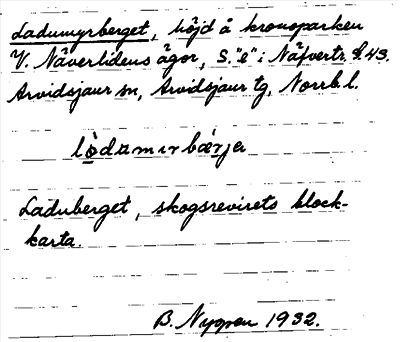 Ladumyrberget, höjd å kronoparken
V. Näverlidens ägor, S. "e" i Näfvertr. f. 43.
Arvidsjaur sn, Arvidsjaur tg, Norrb. l.
lòdamırbærja
Laduberget, skogsrevirets block-
karta.
B. Nygren 1932.